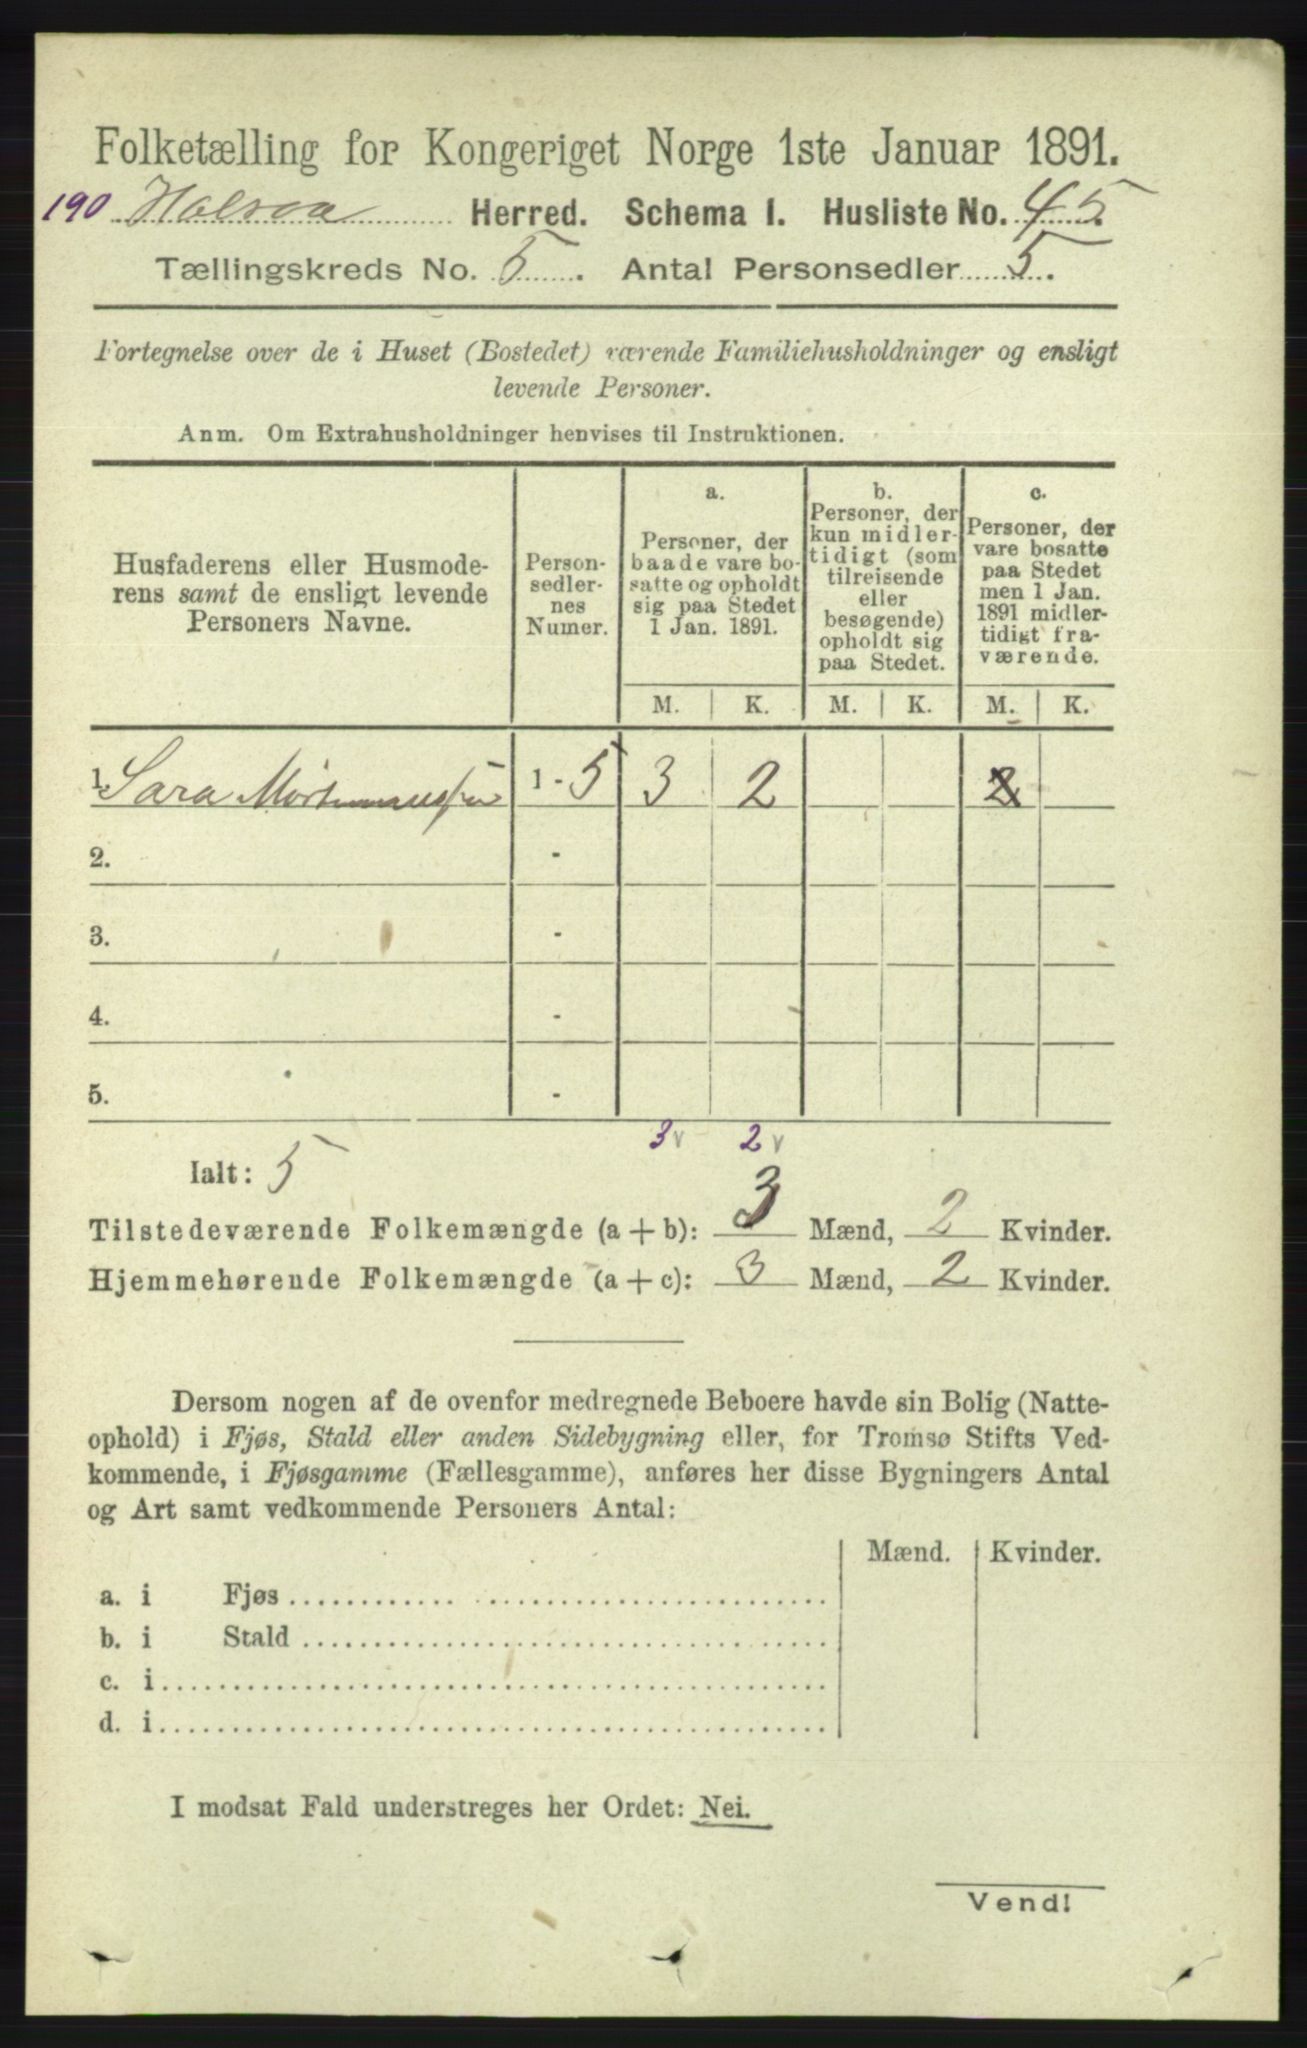 Folketælling for Kongeriget Norge 1ste Januar 1891.
190 Halsaa Herred. Schema 1. Husliste No. 45.
Tællingskreds No. 5. Antal Personsedler 5.
Fortegnelse over de i Huset (Bostedet) værende Familiehusholdninger og ensligt
levende Personer.
Anm. Om Extrahusholdninger henvises til Instruktionen.
Husfaderens eller Husmode-
rens samt de ensligt levende
Personers Navne.
Person-
sedler-
nes
Numer.
a.
Personer, der
baade vare bo-
satte og opholdt
sig paa Stedet
1 Jan. 1891.
b.
Personer, der
kun midler-
tidigt (som
tilreisende
eller
besøgende)
opholdt sig
paa Stedet.
c.
Personer, der
vare bosatte
paa Stedet
men 1 Jan.
1891 midler-
tidigt fra-
værende.
M. K. M. K. M. K.
1. Sara 1 - 5 3 2 2
2. -
3. -
4. -
5. -
3 v 2 v
Ialt: 5
Tilstedeværende Folkemængde (a + b): 3 Mænd, 2 Kvinder.
Hjemmehørende Folkemængde (a + c): 3 Mænd, 2 Kvinder.
Dersom nogen af de ovenfor medregnede Beboere havde sin Bolig (Natte-
ophold) i Fjøs, Stald eller anden Sidebygning eller, for Tromsø Stifts Ved-
kommende, i Fjøsgamme (Fællesgamme), anføres her disse Bygningers Antal
og Art samt vedkommende Personers Antal:
Mænd. Kvinder.
a. i Fjøs
b. i Stald
c. i
d. i
I modsat Fald understreges her Ordet: Nei.
Vend!